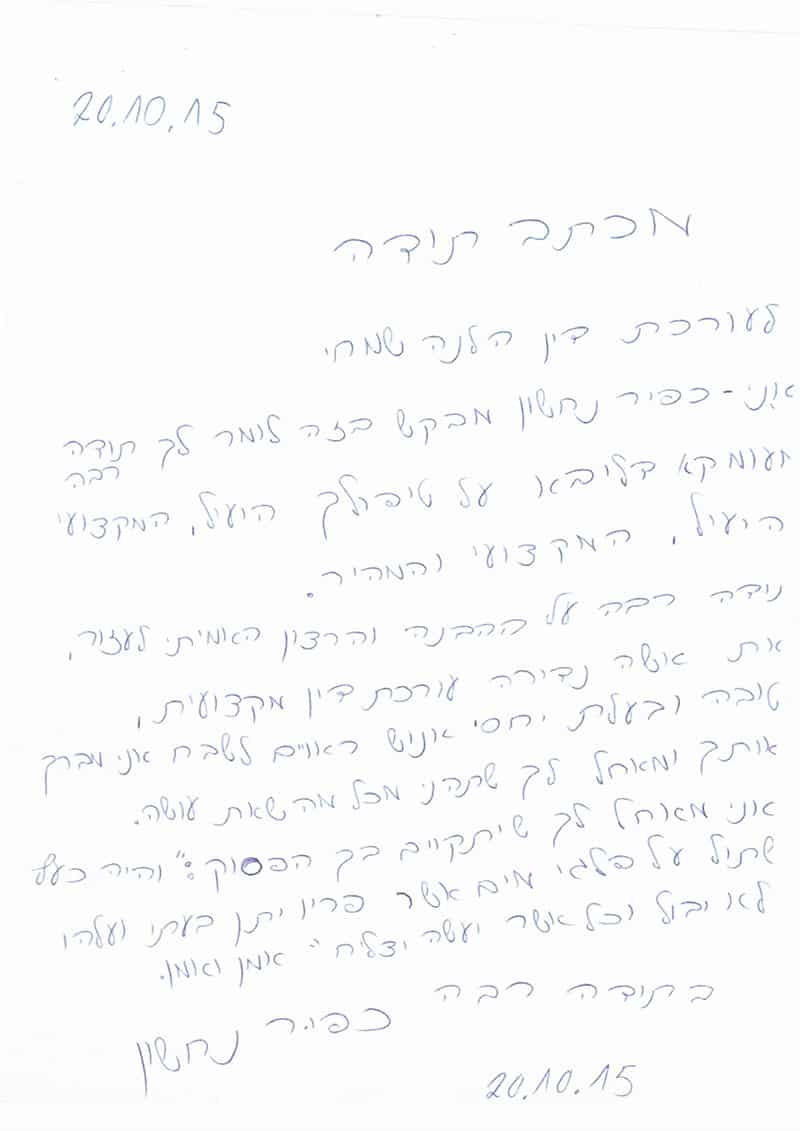 20.10.15
מכתב תודה
לעורכת דין הלנה שמחי
אני - כפיר נחשון מבקש בזה לומר לך תודה
רבה
מעומקא דליבא על טיפולך היעיל, המקצועי
היעיל, המקצועי והמהיר.
תודה רבה על ההבנה והרצון האמיתי לעזור,
את אשה נדירה עורכת דין מקצועית,
טובה ובעלת יחסי אנוש ראויים לשבח אני מברך
אותך ומאחל לך שתהני מכל מה שאת עושה.
אני מאחל לך שיתקויים בך הפסוק: "והיה כעץ
שתול על פלגי מים אשר פריו יתן בעתו ועלהו
לא יבול וכל אשר יעשה יצליח" אמן ואמן.
בתודה רבה כפיר נחשון
20.10.15